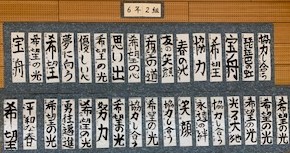 6年2組
宝舟
希望の光
夢に向う
優しい心
希望の光
思い出
希望の道
春の笑顔
春の光
協力
希望
宝舟
琵琶湖
協力し合う
希望
平和な春
勇往邁進
希望の光
努力
希望の光
希望の光
協力し合う
笑顔
永遠の絆
協力し合う
光る大地
希望の光
希望の光